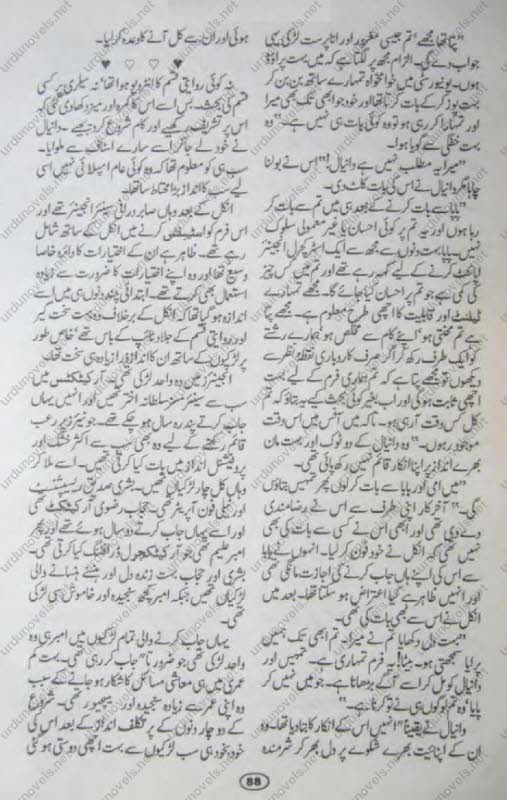 "پتا تھا مجھے' تم جیسی مغرور اور انا پرست لڑکی یہی
جواب دے گی۔ الزام مجھ پر لگتا ہے کہ میں بہت پراؤڈ
ہوں۔ یونیورسٹی میں خوامخواہ تمہارے ساتھ بن بن کر
بہت پوز کر کے بات کرتا تھا اور خود جو ابھی تک بھی میرا
اور تمہارا کر رہی ہو تو وہ کوئی بات ہی نہیں ہے۔" وہ
بہت خفگی سے گویا ہوا۔
"میرا یہ مطلب نہیں ہے دانیال!" اس نے بولنا
چاہا مگر دانیال نے اس کی بات کاٹ دی۔
"پاپا سے بات کرنے کے بعد ہی میں تم سے بات کر
رہا ہوں اور یہ تم پر کوئی احسان یا غیر معمولی سلوک
نہیں۔ پاپا بہت دنوں سے مجھ سے ایک اسٹرکچرل انجینئر
اپائنٹ کرنے کے لیے کہہ رہے تھے اور تم میں کس چیز
کی کمی ہے جو تم پر احسان کیا جائے گا۔ مجھے تمہارے
ٹیلنٹ اور قابلیت کا اچھی طرح معلوم ہے۔ مجھے پتا
ہے تم محنتی ہو' اپنے کام سے مخلص ہو' ہمارے رشتے
کو ایک طرف رکھ کر اگر صرف کاروباری نقطہ نظر سے
دیکھوں تو مجھے پتا ہے کہ تم ہماری فرم کے لیے بہت
اچھی ثابت ہو گی اور اب بغیر کوئی بحث کیے یہ بتاؤ کہ تم
کل کس وقت آ رہی ہو۔ تاکہ میں آفس میں اس وقت
موجود رہوں۔" وہ دانیال کے دو ٹوک اور بہت مان
بھرے انداز پر اپنا انکار قائم نہیں رکھ پائی تھی۔
"میں امی اور پاپا سے بات کر لوں پھر تمہیں بتاؤں
گی۔" آخر کار اپنی طرف سے اس نے رضامندی
دے دی تھی اور ابھی اس نے کسی سے بات کی بھی
نہیں تھی کہ انکل نے خود فون کر لیا۔ انہوں نے پاپا
سے اس کی اپنے ہاں جاب کرنے کی اجازت مانگی تھی
اور انہیں ظاہر ہے کیا اعتراض ہو سکتا تھا۔ بعد میں
انکل نے اس سے بھی بات کی تھی۔
"بہت دل دکھایا تم نے میرا۔ تم ابھی تک ہمیں
پرایا سمجھتی ہو۔ بیٹا! یہ فرم تمہاری ہے۔ تمہیں اور
دانیال کو مل کر اسے آگے بڑھانا ہے۔ جو میں نہیں کر
پایا' وہ تم لوگوں ہی نے تو کرنا ہے۔"
دانیال نے یقیناً" انہیں اس کے انکار کا بتا دیا تھا۔ وہ
ان کے اپنائیت بھرے شکوے پر دل بھر کر شرمندہ
ہوئی اور ان سے کل آنے کا وعدہ کر لیا۔
♥ ♡ ♡ ♥
نہ کوئی روایتی قسم کا انٹرویو ہوا تھا' نہ سیلری پر کسی
قسم کی بحث۔ بس اسے اس کا کمرہ اور میز دکھا دی گئی کہ
اس پر تشریف رکھیے اور کام شروع کر دیجیے۔ دانیال
نے خود لے جا کر اسے سارے اسٹاف سے ملوایا۔
سب ہی کو معلوم تھا کہ وہ کوئی عام ایمپلائی نہیں اسی
لیے سب کا انداز بڑا محتاط سا تھا۔
انکل کے بعد وہاں صابر درانی سینئر انجینئر تھے اور
اس فرم کو اسٹیبلش کرنے میں انکل کے ساتھ شامل
رہے تھے۔ ظاہر ہے ان کے اختیارات کا دائرہ خاصا
وسیع تھا اور وہ اپنے اختیارات کا ضرورت سے زیادہ
استعمال بھی کرتے تھے۔ ابتدائی چند دنوں ہی میں اسے
اندازہ ہو گیا تھا کہ انکل کے برخلاف وہ بہت سخت گیر
اور روایتی قسم کے جلاد ٹائپ کے باس تھے' خاص طور
پر لڑکیوں کے ساتھ ان کا انداز ذرا زیادہ ہی سخت تھا۔
انجینئرز میں وہ واحد لڑکی تھی۔ آرکیٹکٹس میں
سب سے سینئر مسز سلطانہ اختر تھیں اور انہیں یہاں
جاب کرتے پندرہ سال ہو چکے تھے۔ جونیئرز پر رعب
قائم رکھنے کے لیے وہ بھی سب سے اکثر خشک اور
پروفیشنل انداز میں بات کیا کرتی تھیں۔ اسے ملا کر
وہاں کل چار لڑکیاں تھیں۔ بشریٰ صدیقی ریسپشنسٹ
اور ٹیلی فون آپریٹر تھی۔ حجاب رضوی آرکیٹکٹ تھی
اور اسے یہاں جاب کرتے دو سال ہوئے تھے اور پھر
امبر علیم تھی جو آرکیٹکچرل ڈرافٹنگ کیا کرتی تھی۔
بشریٰ اور حجاب بہت زندہ دل اور ہنسنے ہنسانے والی
لڑکیاں تھیں جبکہ امبر کچھ سنجیدہ اور خاموش سی لڑکی
تھی۔
یہاں جاب کرنے والی تمام لڑکیوں میں امبر ہی وہ
واحد لڑکی تھی جو ضرورتاً" جاب کر رہی تھی۔ بہت کم
عمری میں ہی معاشی مسائل کا شکار ہو جانے کے سبب
وہ اپنی عمر سے زیادہ سنجیدہ اور میچور تھی۔ شروع
کے دو چار دنوں کے پر تکلف انداز کے بعد اس کی
خود بخود ہی سب لڑکیوں سے بہت اچھی دوستی ہو گئی
88
urdunovels.net